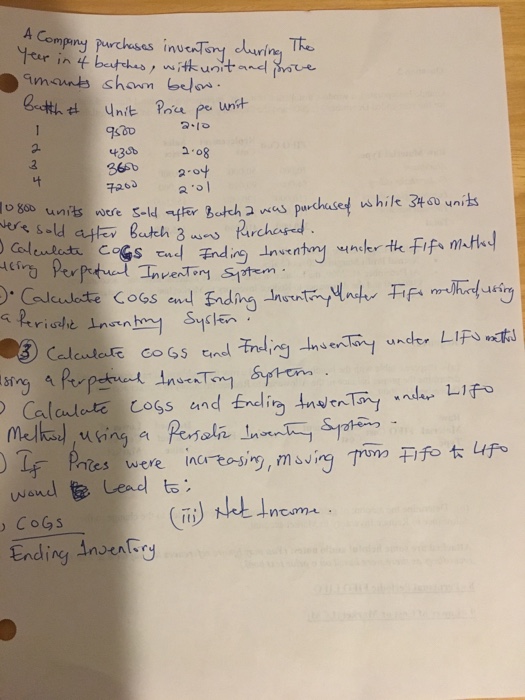 A Company purchases inventory during The
Year in 4 batches, with unit and price
amounts shown below.
Batch # Unit Price per unit
1 9500 2.10
2 4300 2.08
3 3650 2.04
4 7200 2.01
10800 units were sold after Batch 2 was purchased while 3400 units
were sold after Batch 3 was Purchased.
) Calculate COGS and Ending Inventory under the FIFO Method
using Perpetual Inventory System.
). Calculate COGS and Ending Inventory Under FIFO method, using
a Periodic Inventory System.
③ Calculate COGS and Ending Inventory under LIFO method
using a Perpetual Inventory System.
) Calculate COGS and Ending Inventory under LIFO
Method, using a Periodic Inventory System.
) If Prices were increasing, moving from FIFO to LIFO
would Lead to:
) COGS (iii) Net Income.
Ending Inventory